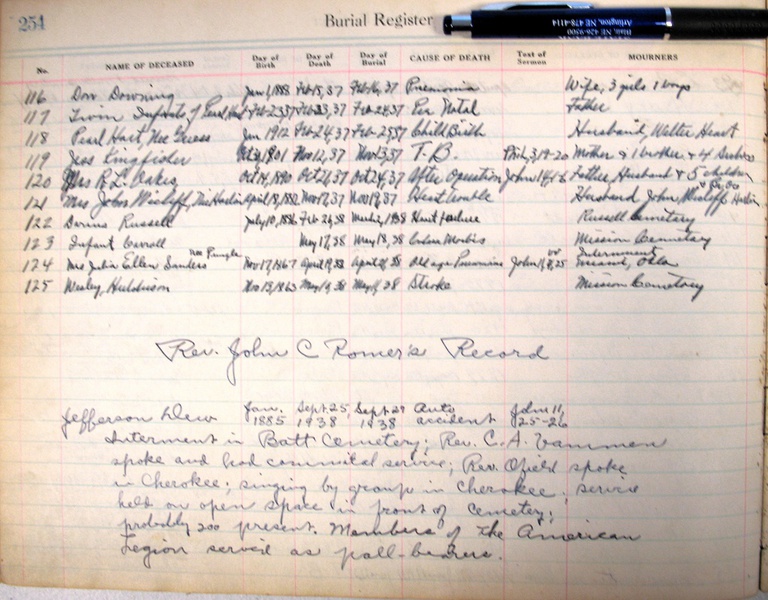 254 Burial Register
Blair, NE 426-9500
Arlington, NE 478-4114
No. NAME OF DECEASED Day of Birth Day of Death Day of Burial CAUSE OF DEATH Text of Sermon MOURNERS
116 Don Downing Jan 1, 1888 Feb 15, 37 Feb 16, 37 Pneumonia Wife, 3 girls 1 boys
117 Twin Infants of Pearl Hart Feb 23, 37 Feb 23, 37 Feb 24, 37 Pre Natal Father
118 Pearl Hart, Nee Guess Jan 1912 Feb 24, 37 Feb 25, 37 Child Birth Husband, Walter Hart
119 Jess Kingfisher 1901 Nov 12, 37 Nov 13, 37 T.B. Phil, 3, 19-20 Mother & 1 brother & 4 Sisters
120 Mrs R.L. Oakes Oct 14, 1890 Oct 21, 37 Oct 24, 37 After Operation John 14, 1-6 Father, Husband & 5 children
121 Mrs John Nee Harlin April 18, 1882 Nov 17, 37 Nov 19, 37 Heart trouble Husband John, Harlin
122 Dennis Russell July 10, 1886 Feb 28, 38 1938 Heart failure Russell Cemetery
123 Infant Carroll May 17, 38 May 18, 38 Mission Cemetery
124 Mrs Julia Ellen Sanders nee Nov 17, 1867 April 19, 38 April 21, 38 Old age Pneumonia John 11, 25 Interment Miami, Okla
125 Wesley Hutchinson Nov 15, 1863 May 19, 38 May 38 Stroke Mission Cemetery
Rev. John C Romer's Record
Jefferson Dew Jan. 1885 Sept 25, 1938 Sept 29 1938 Auto accident John 11, 25-26
Interment in Batt Cemetery; Rev. C. A. Vammen
spoke and had commital service; Rev. Ofield spoke
in Cherokee; singing by group in Cherokee; service
held on open space in front of cemetery;
probably 200 present. Members of the American
Legion served as pall-bearers.